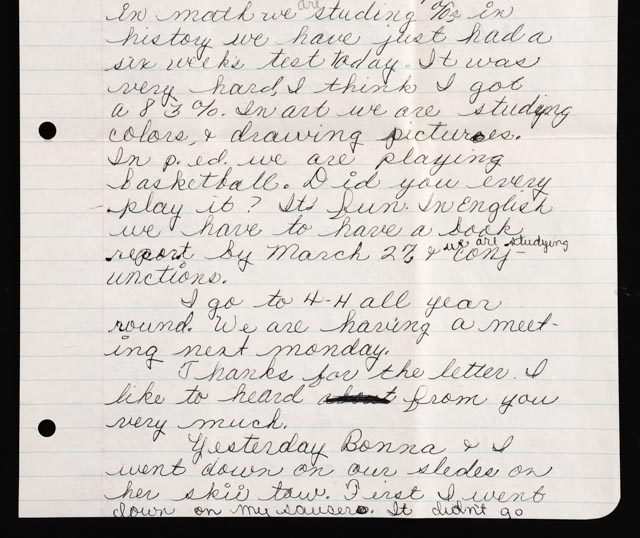 In math we are studing %s in
history we have just had a
six weeks test today. It was
very hard, I think I got
a 83%. In art we are studing
colors, & drawing pictures.
In p.ed. we are playing
basketball. Did you every
play it? Its fun. In English
we have to have a book
report by March 27, & we are studying conj-
unctions.
I go to 4-H all year
round. We are having a meet-
ing next monday.
Thanks for the letter. I
like to heard from you
very much.
Yesterday Bonna & I
went down on our sledes on
her skii tow. First I went
down on my sausers. It didn't go